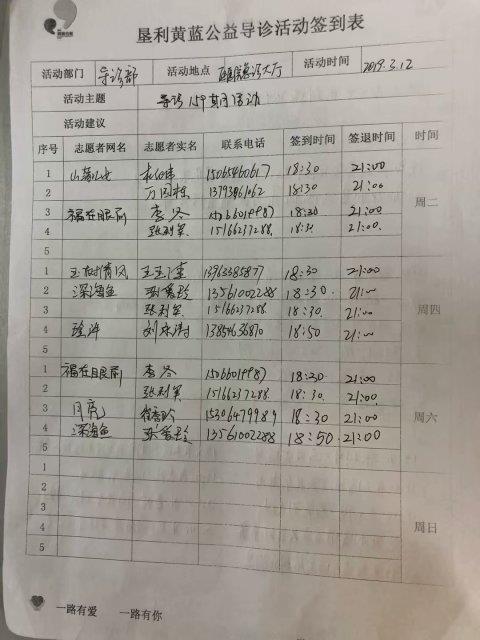 垦利黄蓝公益导诊活动签到表
活动部门 导诊部 活动地点 大厅 活动时间 2019.3.12
活动主题 导诊159期活动
活动建议
序号 志愿者网名 志愿者实名 联系电话 签到时间 签退时间 时间
1 15065460617 18:30 21:00
2 万国栋 13793861062 18:30 21:00
3 福在眼前 李冬 15066019987 18:30 21:00 周二
4 张利军 15166237288 18:30 21:00
5
1 玉树清风 13963385877 18:30 21:00
2 深海鱼 张秀玲 13561002288 18:30 21:00
3 张利军 15166237288 18:30 21:00 周四
4 13854636870 18:50 21:00
5
1 福在眼前 李冬 15066019987 18:30 21:00
2 张利军 15166237288 18:30 21:00
3 月亮 15306479989 18:30 21:00 周六
4 深海鱼 张秀玲 13561002288 18:50 21:00
5
1
2
3
4 周日
5
一路有爱 一路有你